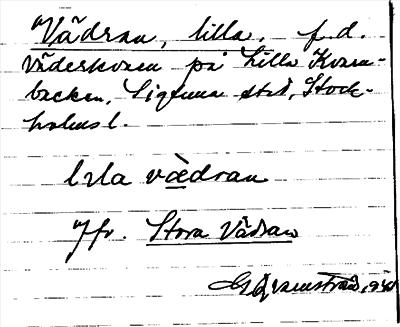 Vädran, lilla, f.d.
väderkvarn på Lilla Kvarn-
backen, Sigtuna stad, Stock-
holms l.
lılla vædran
Jfr. Stora Vädran